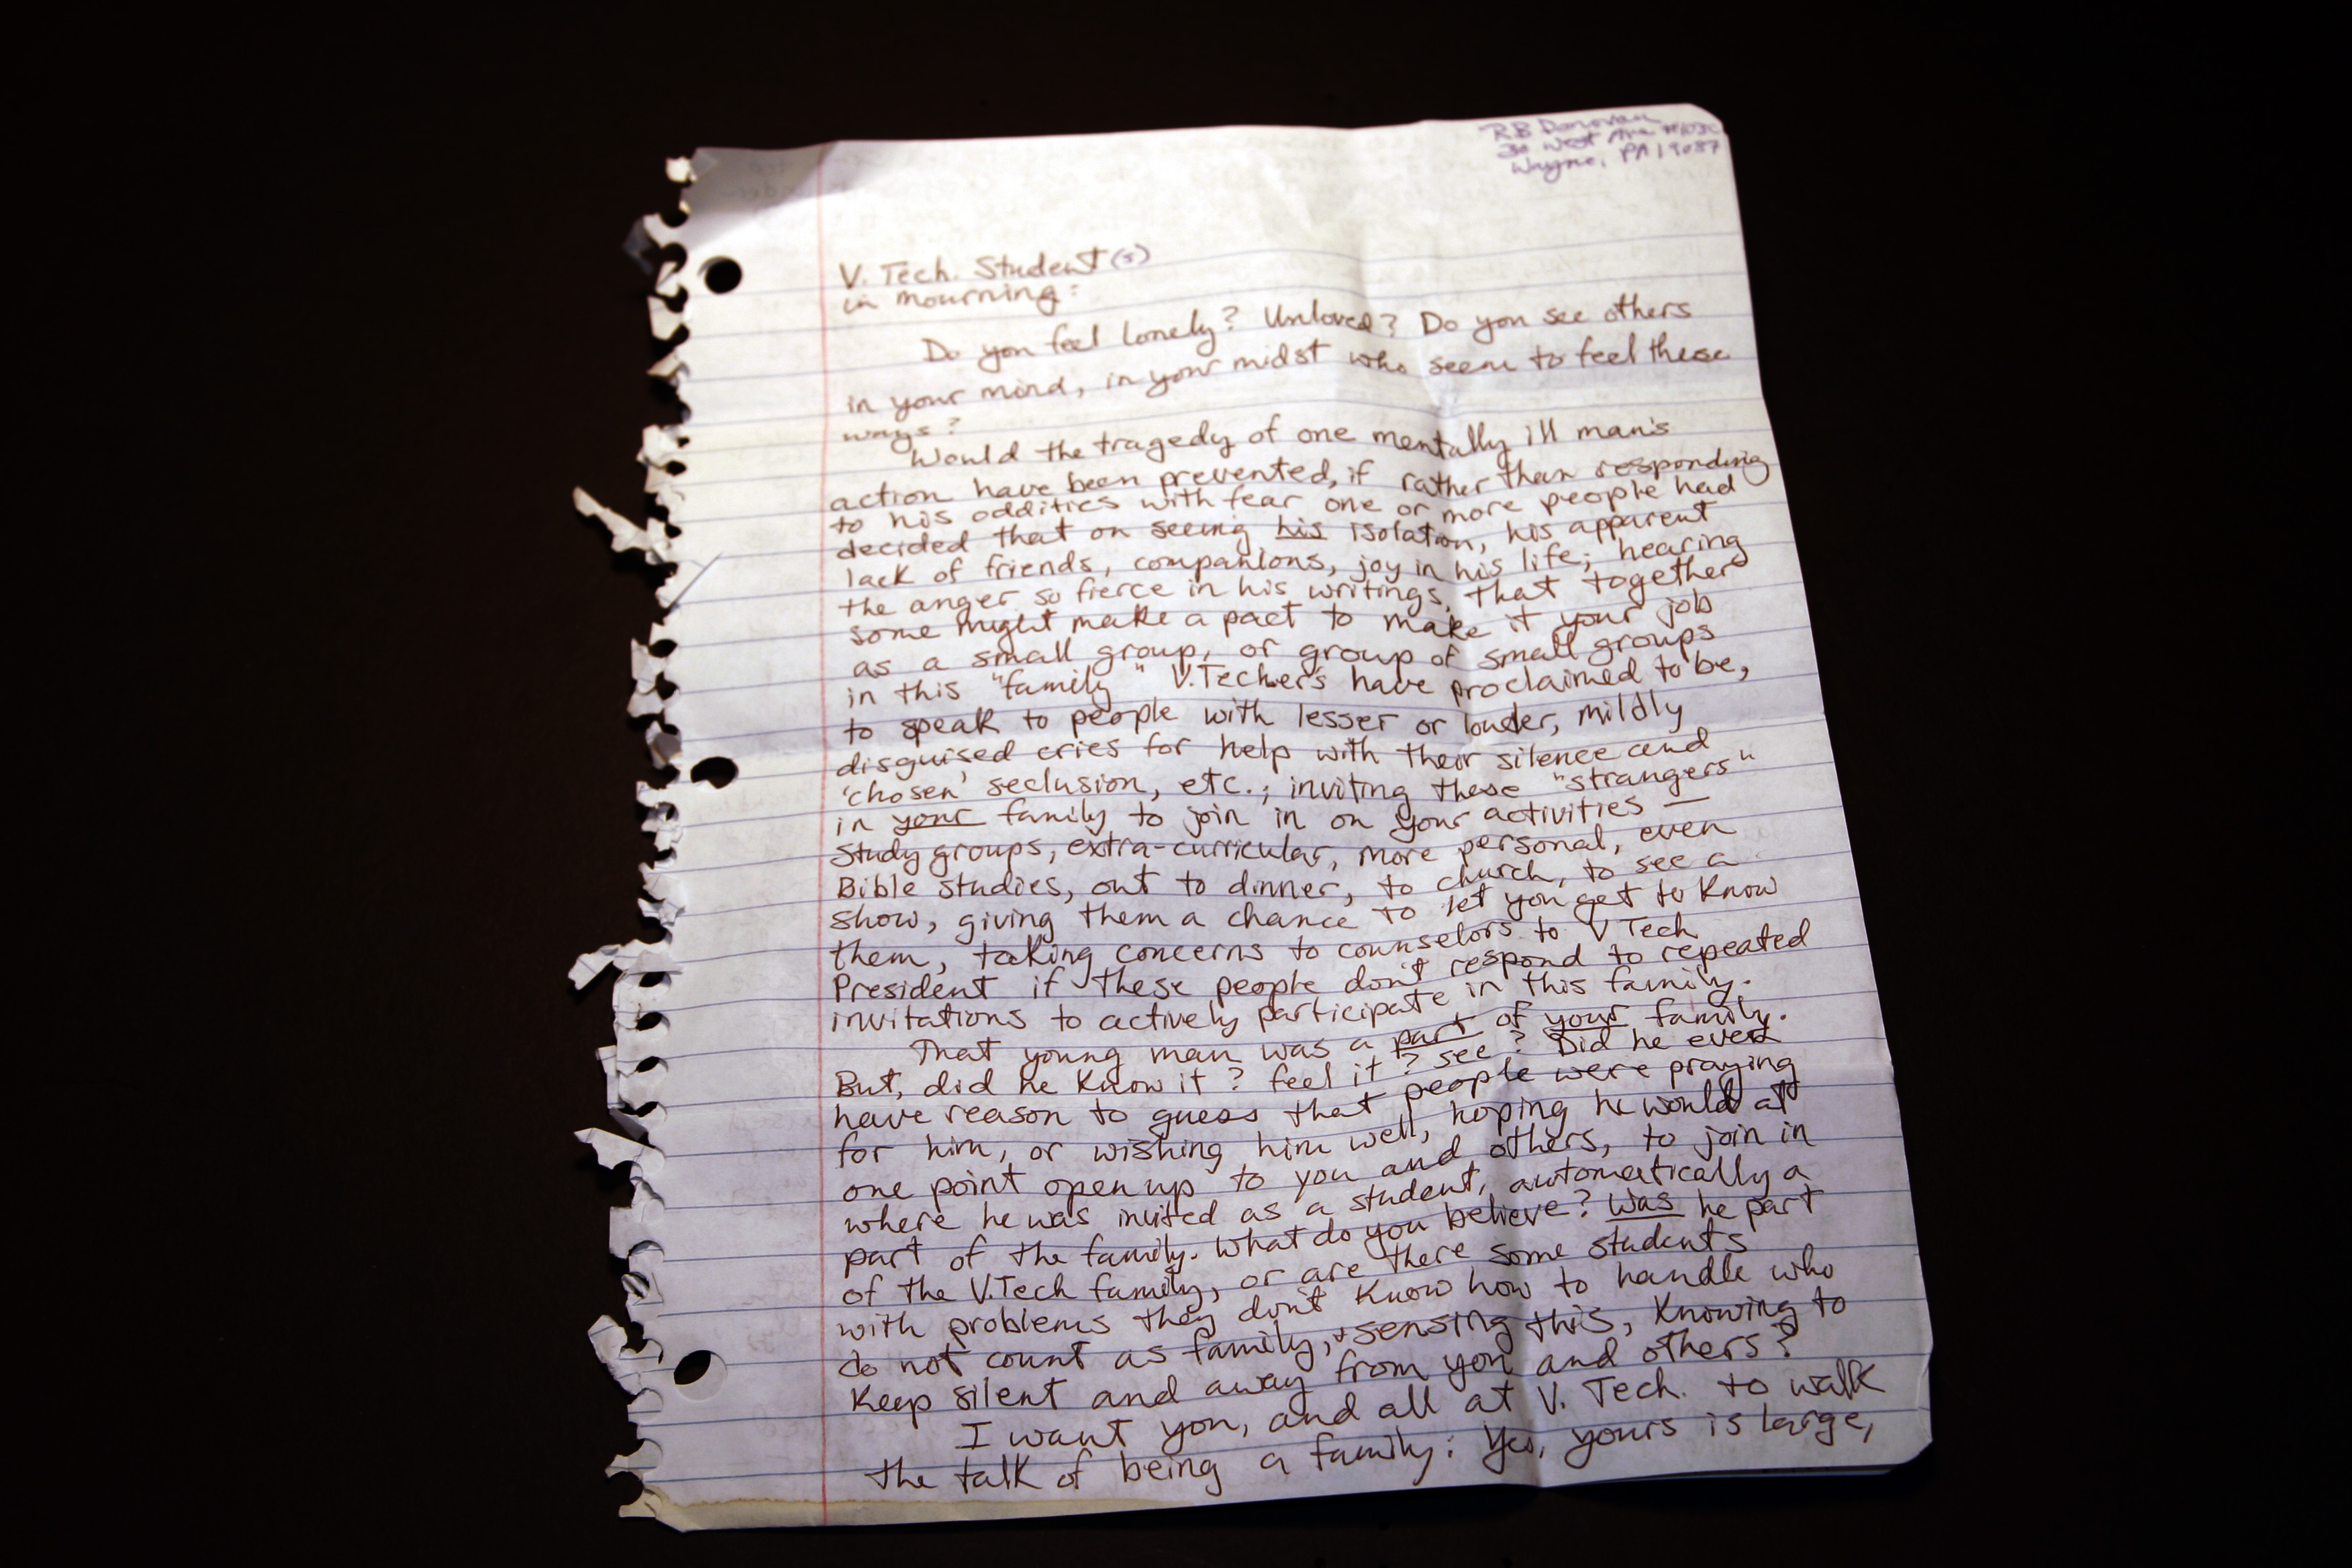 RB Donovan
30 West Ave
Wayne, PA 19087
V. Tech. Student(s)
in mourning:
Do you feel lonely? Unloved? Do you see others
in your mind, in your midst who seem to feel these
ways?
Would the tragedy of one mentally ill man's
action have been prevented, if rather than responding
to his oddities with fear one or more people had
decided that on seeing his isolation, his apparent
lack of friends, companions, joy in his life; hearing
the anger so fierce in his writings, that together
some might make a pact to make it your job
as a small group, or group of small groups
in this "family" V.Techers have proclaimed to be,
to speak to people with lesser or louder, mildly
disguised cries for help with their silence and
'chosen' seclusion, etc.; inviting these "strangers"
in your family to join in on your activities —
study groups, extra-curricular, more personal, even
Bible studies, out to dinner, to church, to see a
show, giving them a chance to let you get to know
them, taking concerns to counselors to V Tech
President if these people don't respond to repeated
invitations to actively participate in this family.
That young man was a part of your family.
But, did he know it? feel it? see? Did he ever
have reason to guess that people were praying
for him, or wishing him well, hoping he would at
one point open up to you and others, to join in
where he was invited as a student, automatically a
part of the family. What do you believe? Was he part
of the V.Tech family, or are there some students
with problems they don't know how to handle who
do not count as family, + sensing this, knowing to
keep silent and away from you and others?
I want you, and all at V. Tech. to walk
the talk of being a family: Yes, yours is large,